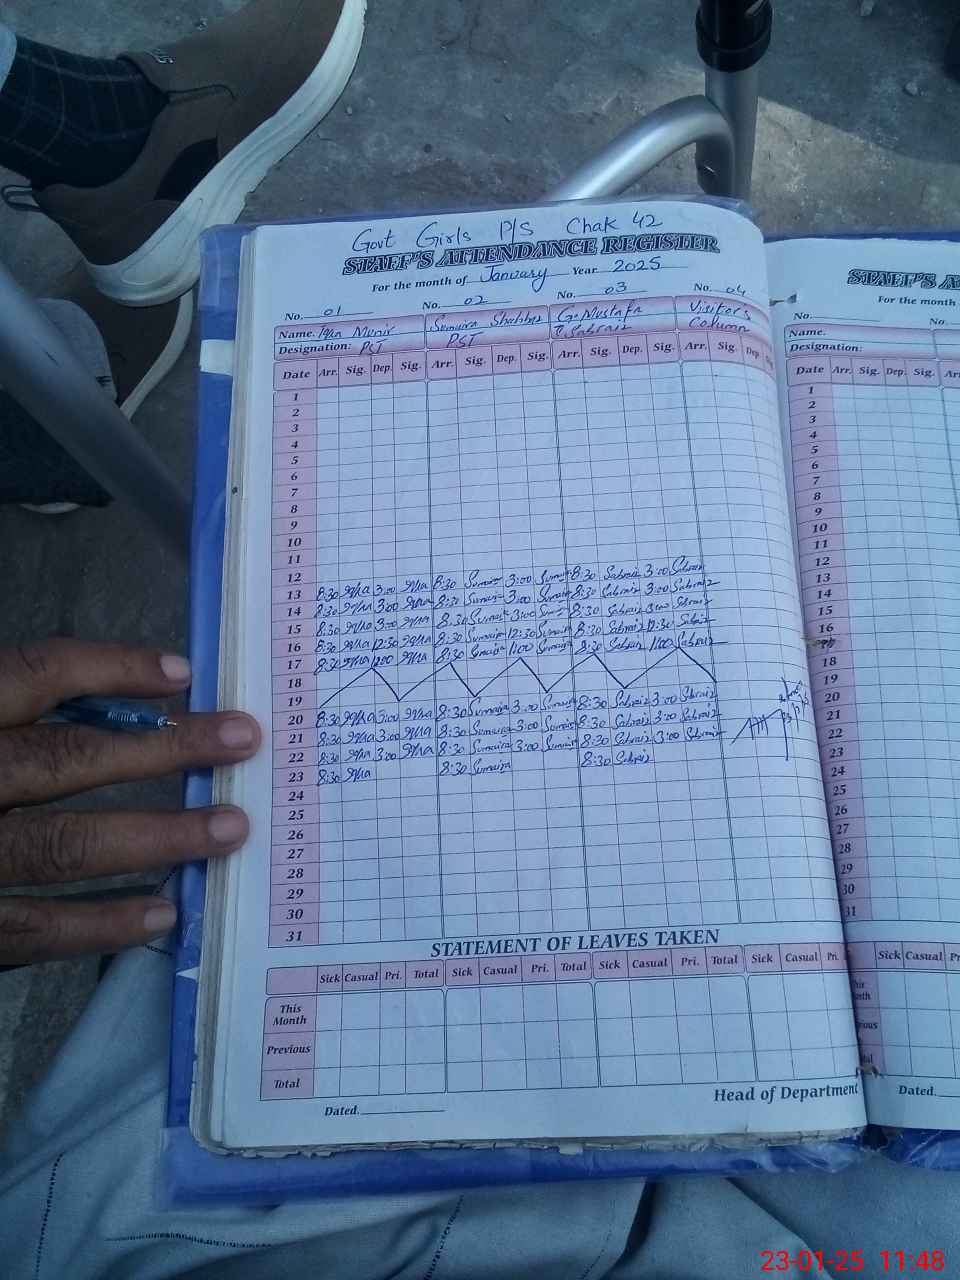 Govt Girls P/S Chak 42
STAFF'S ATTENDANCE REGISTER
For the month of January Year 2025
No. 01 No. 02 No. 03 No. 04
Name. Iqra Munir Sumaira Shahbaz G. Mustafa Visitor's
Designation: PST PST Column
Date Arr. Sig. Dep. Sig. Arr. Sig. Dep. Sig. Arr. Sig. Dep. Sig. Arr. Sig. Dep.
1
2
3
4
5
6
7
8
9
10
11
12
13 8:30 Iqra 3:00 Iqra 8:30 Sumaira 3:00 Sumaira 8:30 Sabraiz 3:00 Sabraiz
14 8:30 Iqra 3:00 Iqra 8:30 Sumaira 3:00 Sumaira 8:30 Sabraiz 3:00 Sabraiz
15 8:30 Iqra 3:00 Iqra 8:30 Sumaira 3:00 Sumaira 8:30 Sabraiz 3:00 Sabraiz
16 8:30 Iqra 12:30 Iqra 8:30 Sumaira 12:30 Sumaira 8:30 Sabraiz 12:30 Sabraiz
17 8:30 Iqra Iqra 8:30 Sumaira 1:00 Sumaira 8:30 Sabraiz 1:00 Sabraiz
18
19
20 8:30 Iqra 3:00 Iqra 8:30 Sumaira 3:00 Sumaira 8:30 Sabraiz 3:00 Sabraiz
21 8:30 Iqra 3:00 Iqra 8:30 Sumaira 3:00 Sumaira 8:30 Sabraiz 3:00 Sabraiz
22 8:30 Iqra 3:00 Iqra 8:30 Sumaira 3:00 Sumaira 8:30 Sabraiz 3:00 Sabraiz
23 8:30 Iqra 8:30 Sumaira 8:30 Sabraiz
24
25
26
27
28
29
30
31
STATEMENT OF LEAVES TAKEN
Sick Casual Pri. Total Sick Casual Pri. Total Sick Casual Pri. Total Sick Casual Pri.
This
Month
Previous
Total
Dated. Head of Department
STAFF'S
For the month
No. No.
Name.
Designation:
Date Arr. Sig. Dep. Sig.
1
2
3
4
5
6
7
8
9
10
11
12
13
14
15
16
18
19
20
21
22
23
24
25
26
27
28
29
30
31
Sick Casual
Dated.
23-01-25 11:48